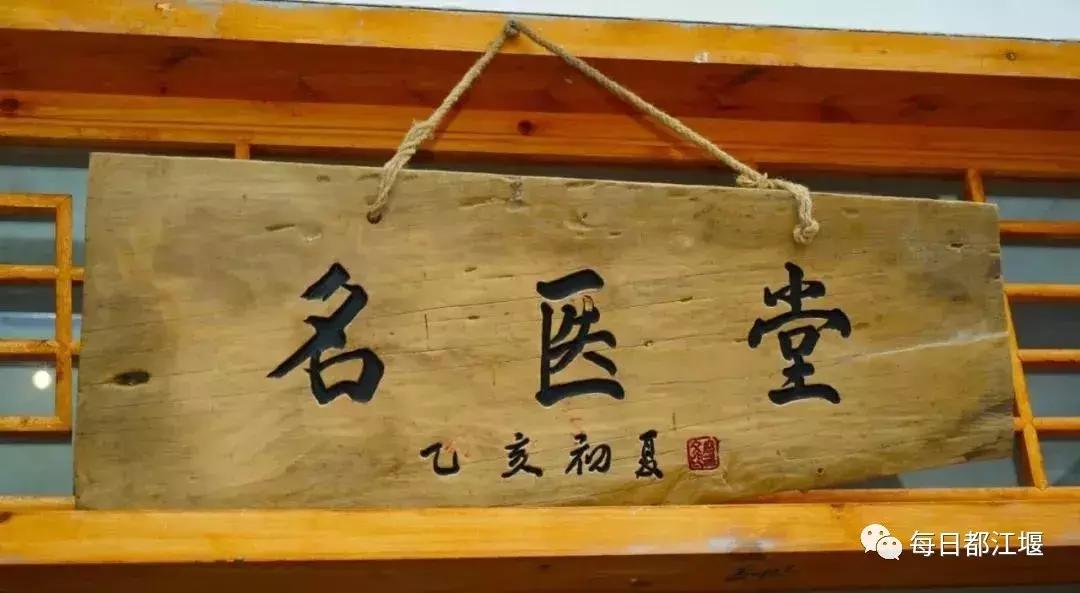 名医堂
乙亥初夏
每日都江堰